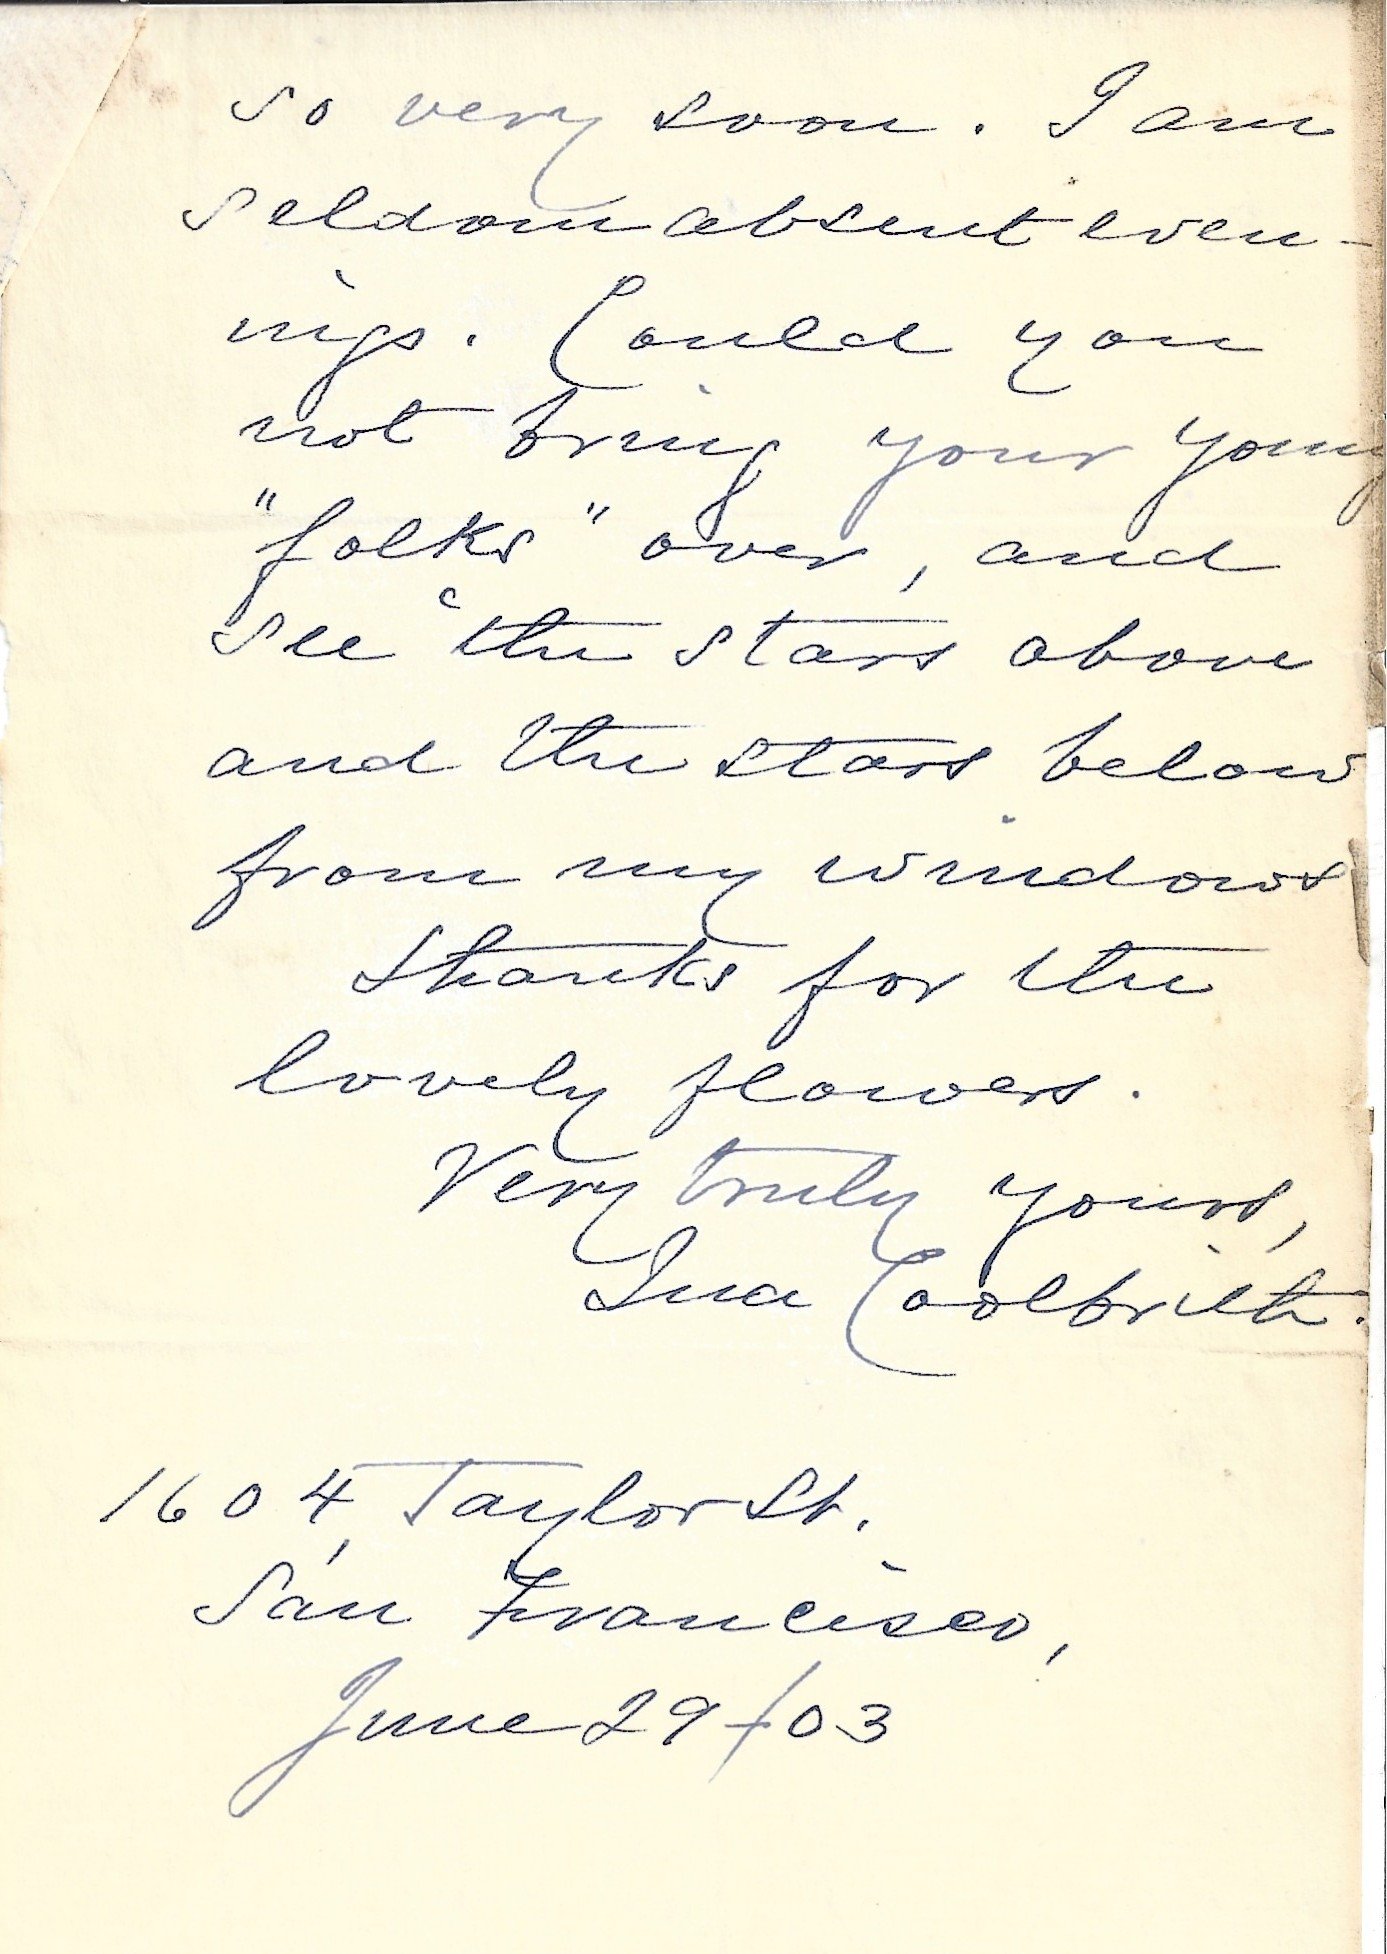 so very soon. I am
seldom absent even-
ings. Could you
not bring your young
"folks" over, and
see "the stars above
and the stars below
from my windows
Thanks for the
lovely flowers.
Very truly yours,
Ina Coolbrith.
1604, Taylor St.
San Francisco,
June 29/03